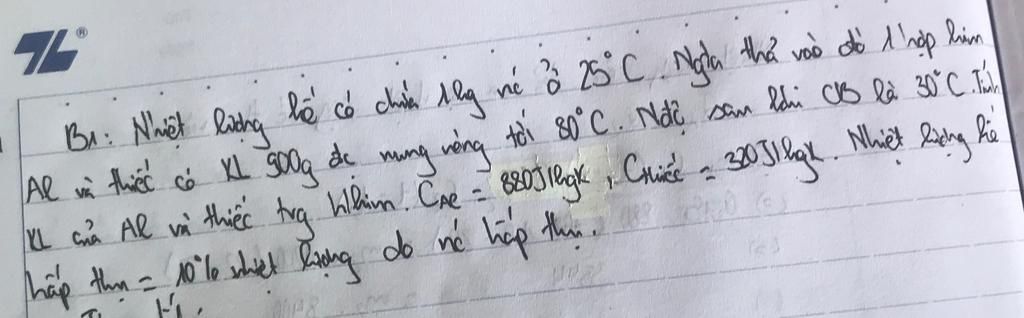 TL®
B1: Nhiệt lượng kế có chứa 1kg nc ở 25°C. Ngta thả vào đó 1 hợp kim
Al và thiếc có KL 900g đc nung nóng tới 80°C. Nđộ sau khi CB là 30°C. Tính
KL của Al và thiếc trg h/kim. CAl = 880J/kgK, Cthiếc = 320J/kgK. Nhiệt lượng kế
hấp thụ = 10% nhiệt lượng do nc hấp thụ.